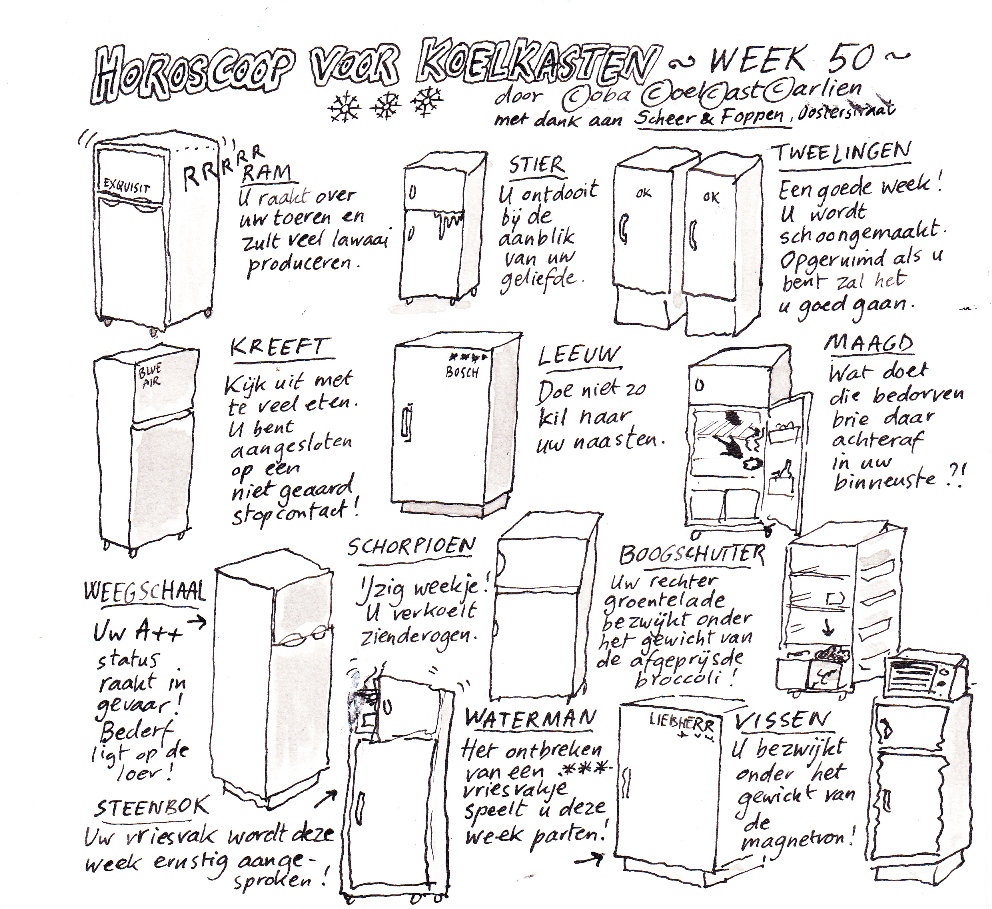 HOROSCOOP VOOR KOELKASTEN ~ WEEK 50 ~
door ©oba ©oel©ast©arlien
met dank aan Scheer & Foppen, Oosterstraat
EXQUISIT
RRRRR
RAM
U raakt over
uw toeren en
zult veel lawaai
produceren.
STIER
U ontdooit
bij de
aanblik
van uw
geliefde.
OK
OK
TWEELINGEN
Een goede week!
U wordt
schoongemaakt.
Opgeruimd als u
bent zal het
u goed gaan.
BLUE
AIR
KREEFT
Kijk uit met
te veel eten.
U bent
aangesloten
op een
niet geaard
stopcontact!
****
BOSCH
LEEUW
Doe niet zo
kil naar
uw naasten.
MAAGD
Wat doet
die bedorven
brie daar
achteraf
in uw
binnenste ?!
WEEGSCHAAL
Uw A++ →
status
raakt in
gevaar!
Bederf
ligt op de
loer!
SCHORPIOEN
IJzig weekje!
U verkoelt
zienderogen.
BOOGSCHUTTER
Uw rechter
groentelade
bezwijkt onder
het gewicht van
de afgeprijsde
broccoli!
STEENBOK
Uw vriesvak wordt deze
week ernstig aange-
sproken!
WATERMAN
Het ontbreken
van een ***-
vriesvakje
speelt u deze
week parten!
LIEBHERR
VISSEN
U bezwijkt
onder het
gewicht van
de
magnetron!